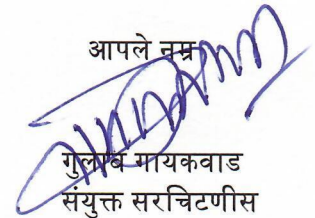 आपले नम्र
गुलाब गायकवाड
संयुक्त सरचिटणीस